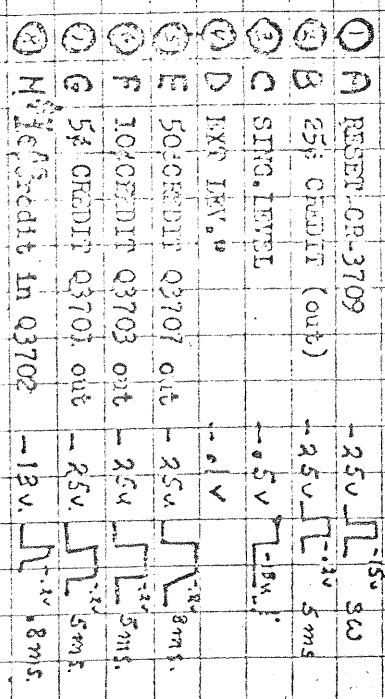 ① A RESET-CR-3709 -25v -15v
② B 25¢ CREDIT (out) -25v -.2v 5ms
③ C SING. LEVEL -.5v -18v
④ D EXP LEV." -.1v
⑤ E 50¢ CREDIT Q3707 out -25v -.2v .8ms.
⑥ F 10¢ CREDIT Q3703 out -25v -.2v 5ms.
⑦ G 5¢ CREDIT Q3701 out -25v. -.2v 5ms.
⑧ H credit in Q3702 -18v. -.2v .8ms.